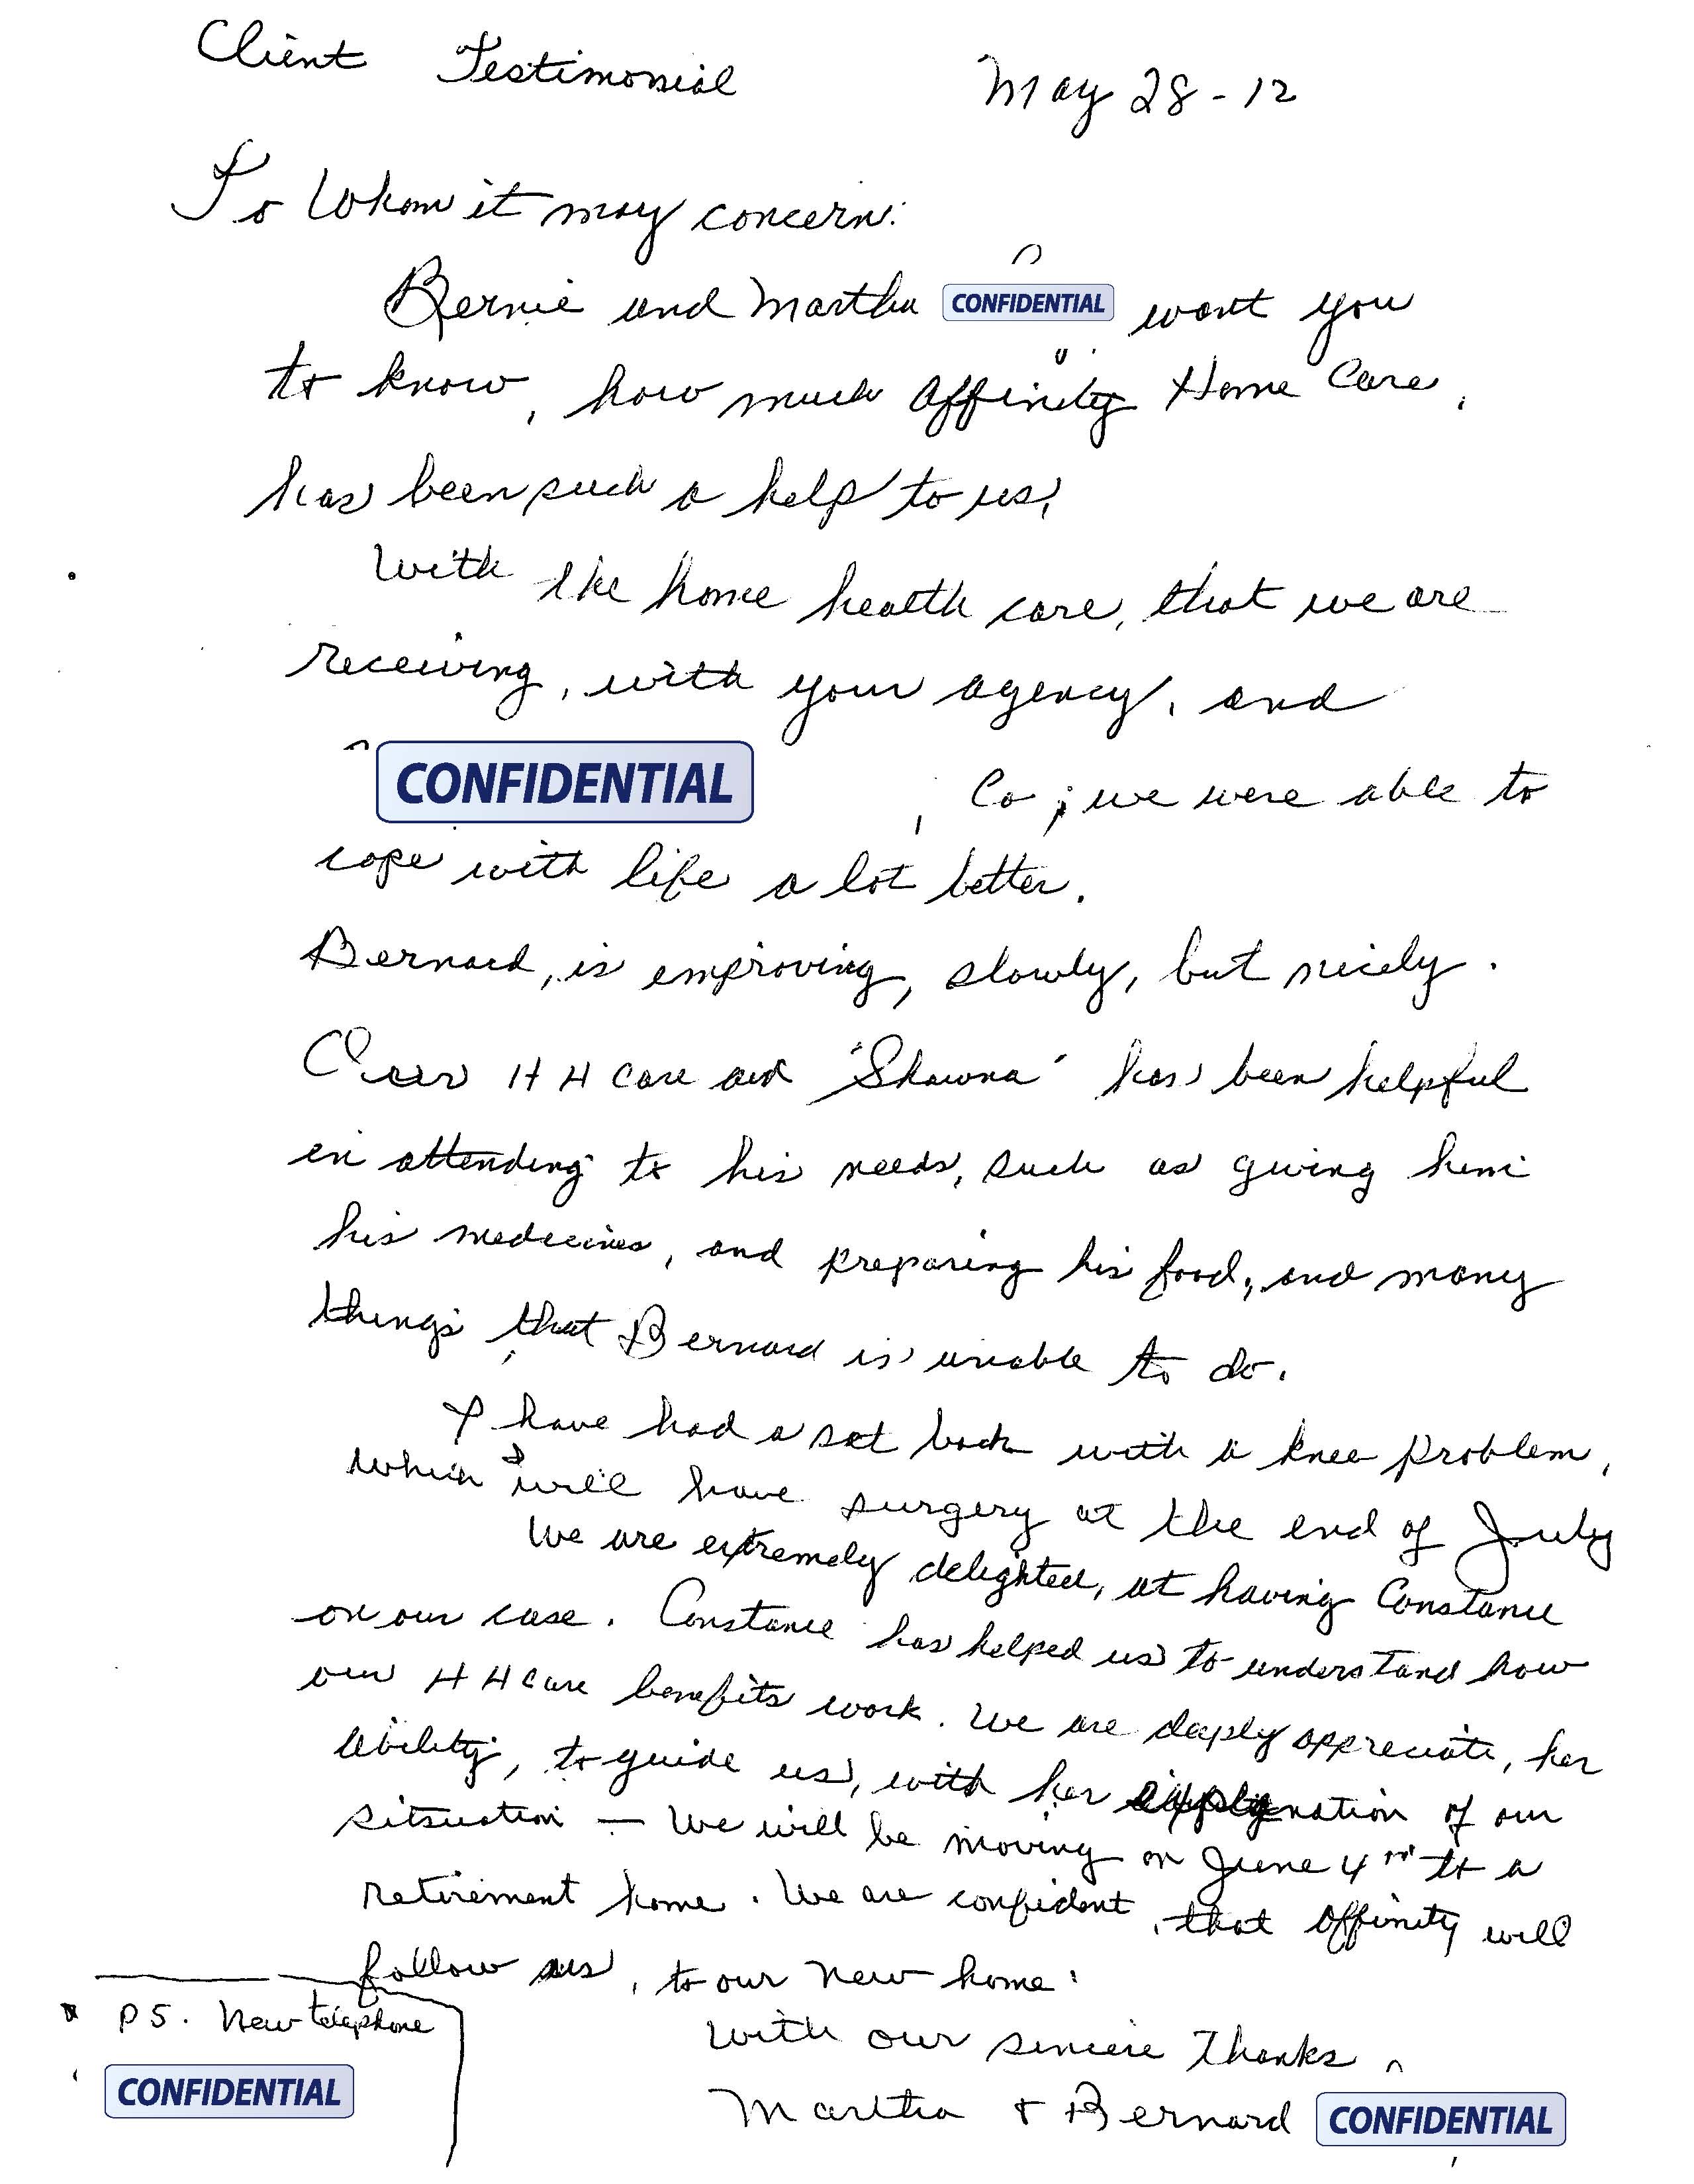 Client Testimonial May 28-12
To Whom it may concern:
Bernie and Martha CONFIDENTIAL want you
to know, how much Affinity Home Care,
has been such a help to us,
With the home health care, that we are
receiving, with your agency, and
CONFIDENTIAL , Co; we were able to
cope with life a lot better.
Bernard, is improving, slowly, but nicely.
Our HH Care aid "Shawna" has been helpful
in attending to his needs, such as giving him
his medecines, and preparing his food, and many
things, that Bernard is unable to do.
I have had a set back with a knee problem,
which I will have surgery at the end of July
We are extremely delighted, at having Constance
on our case. Constance has helped us to understand how
our HH Care benefits work. We are deeply appreciate, her
ability, to guide us, with her explanation of our
sitsuation — We will be moving on June 4 to a
retirement home. We are confident, that Affinity will
follow us, to our new home.
PS. New telephone
CONFIDENTIAL
With our sincere Thanks
Martha & Bernard CONFIDENTIAL